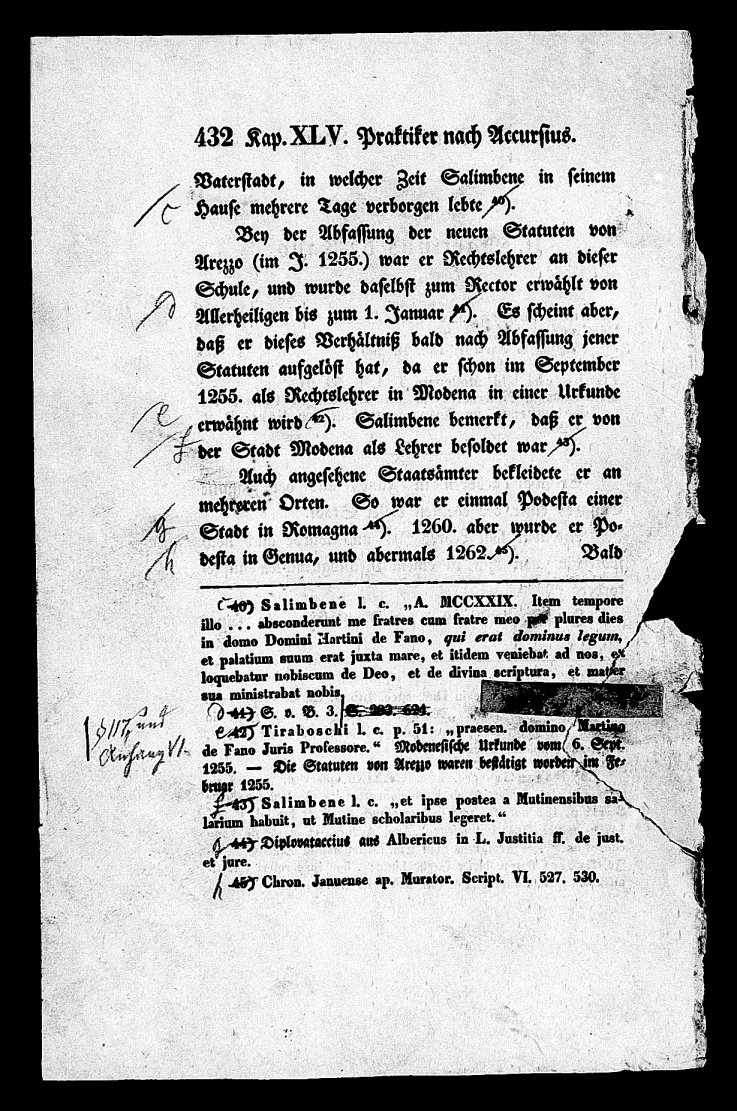 432 Kap. XLV. Praktiker nach Accursius.
Vaterstadt, in welcher Zeit Salimbene in seinem
c Hause mehrere Tage verborgen lebte 40).
Bey der Abfassung der neuen Statuten von
Arezzo (im J. 1255.) war er Rechtslehrer an dieser
Schule, und wurde daselbst zum Rector erwählt von
d Allerheiligen bis zum 1. Januar 41). Es scheint aber,
daß er dieses Verhältniß bald nach Abfassung jener
Statuten aufgelöst hat, da er schon im September
1255. als Rechtslehrer in Modena in einer Urkunde
e erwähnt wird 42). Salimbene bemerkt, daß er von
f der Stadt Modena als Lehrer besoldet war 43).
Auch angesehene Staatsämter bekleidete er an
mehreren Orten. So war er einmal Podesta einer
g Stadt in Romagna 44). 1260. aber wurde er Po-
h desta in Genua, und abermals 1262. 45). Bald
c 40) Salimbene l. c. „A. MCCXXIX. Item tempore
illo ... absconderunt me fratres cum fratre meo per plures dies
in domo Domini Martini de Fano, qui erat dominus legum,
et palatium suum erat juxta mare, et itidem veniebat ad nos, et
loquebatur nobiscum de Deo, et de divina scriptura, et mater
sua ministrabat nobis.
d 41) S. o. B. 3. S. 293. 624.
§ 117, und
Anhang VI.
e 42) Tiraboschi l. c. p. 51: „praesen. domino Martino
de Fano Juris Professore.“ Modenesische Urkunde vom 6. Sept.
1255. — Die Statuten von Arezzo waren bestätigt worden im Fe-
bruar 1255.
f 43) Salimbene l. c. „et ipse postea a Mutinensibus sa-
larium habuit, ut Mutine scholaribus legeret.“
g 44) Diplovataccius aus Albericus in L. Justitia ff. de just.
et jure.
h 45) Chron. Januense ap. Murator. Script. VI. 527. 530.